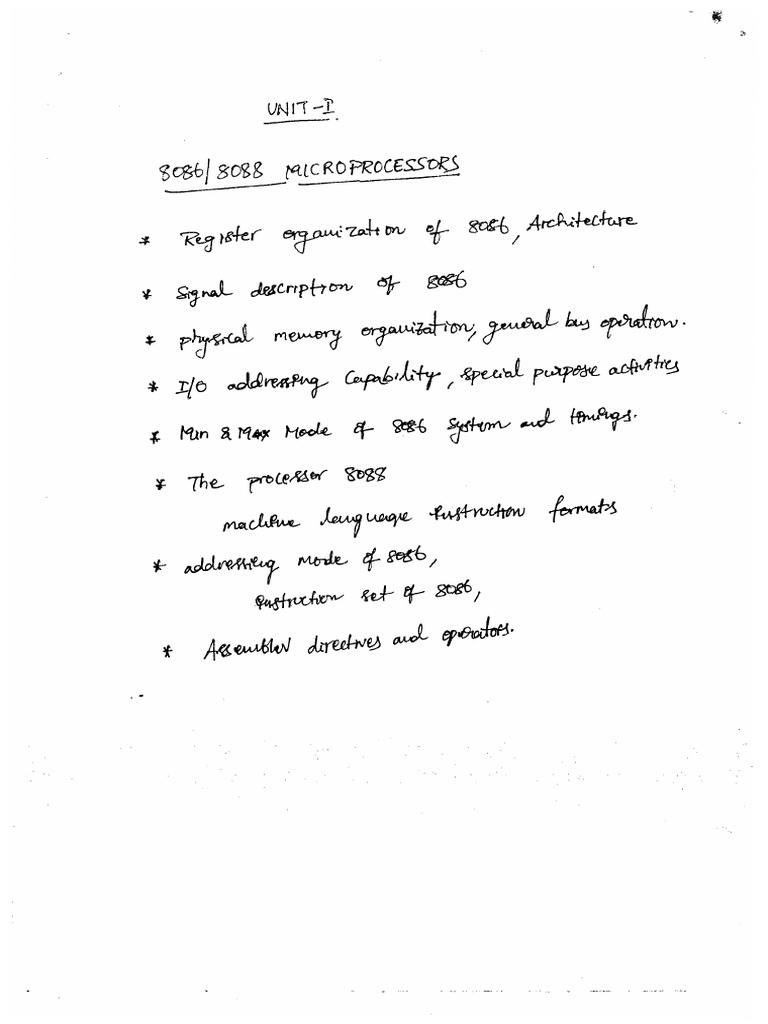 UNIT-I.
8086/8088 MICROPROCESSORS
* Register organization of 8086, Architecture
* Signal description of 8086
* physical memory organization, general bus operation.
* I/O addressing Capability, special purpose activities
* Min & Max Mode of 8086 system and timings.
* The processor 8088
machine language instruction formats
* addressing mode of 8086,
instruction set of 8086,
* Assembler directives and operators.